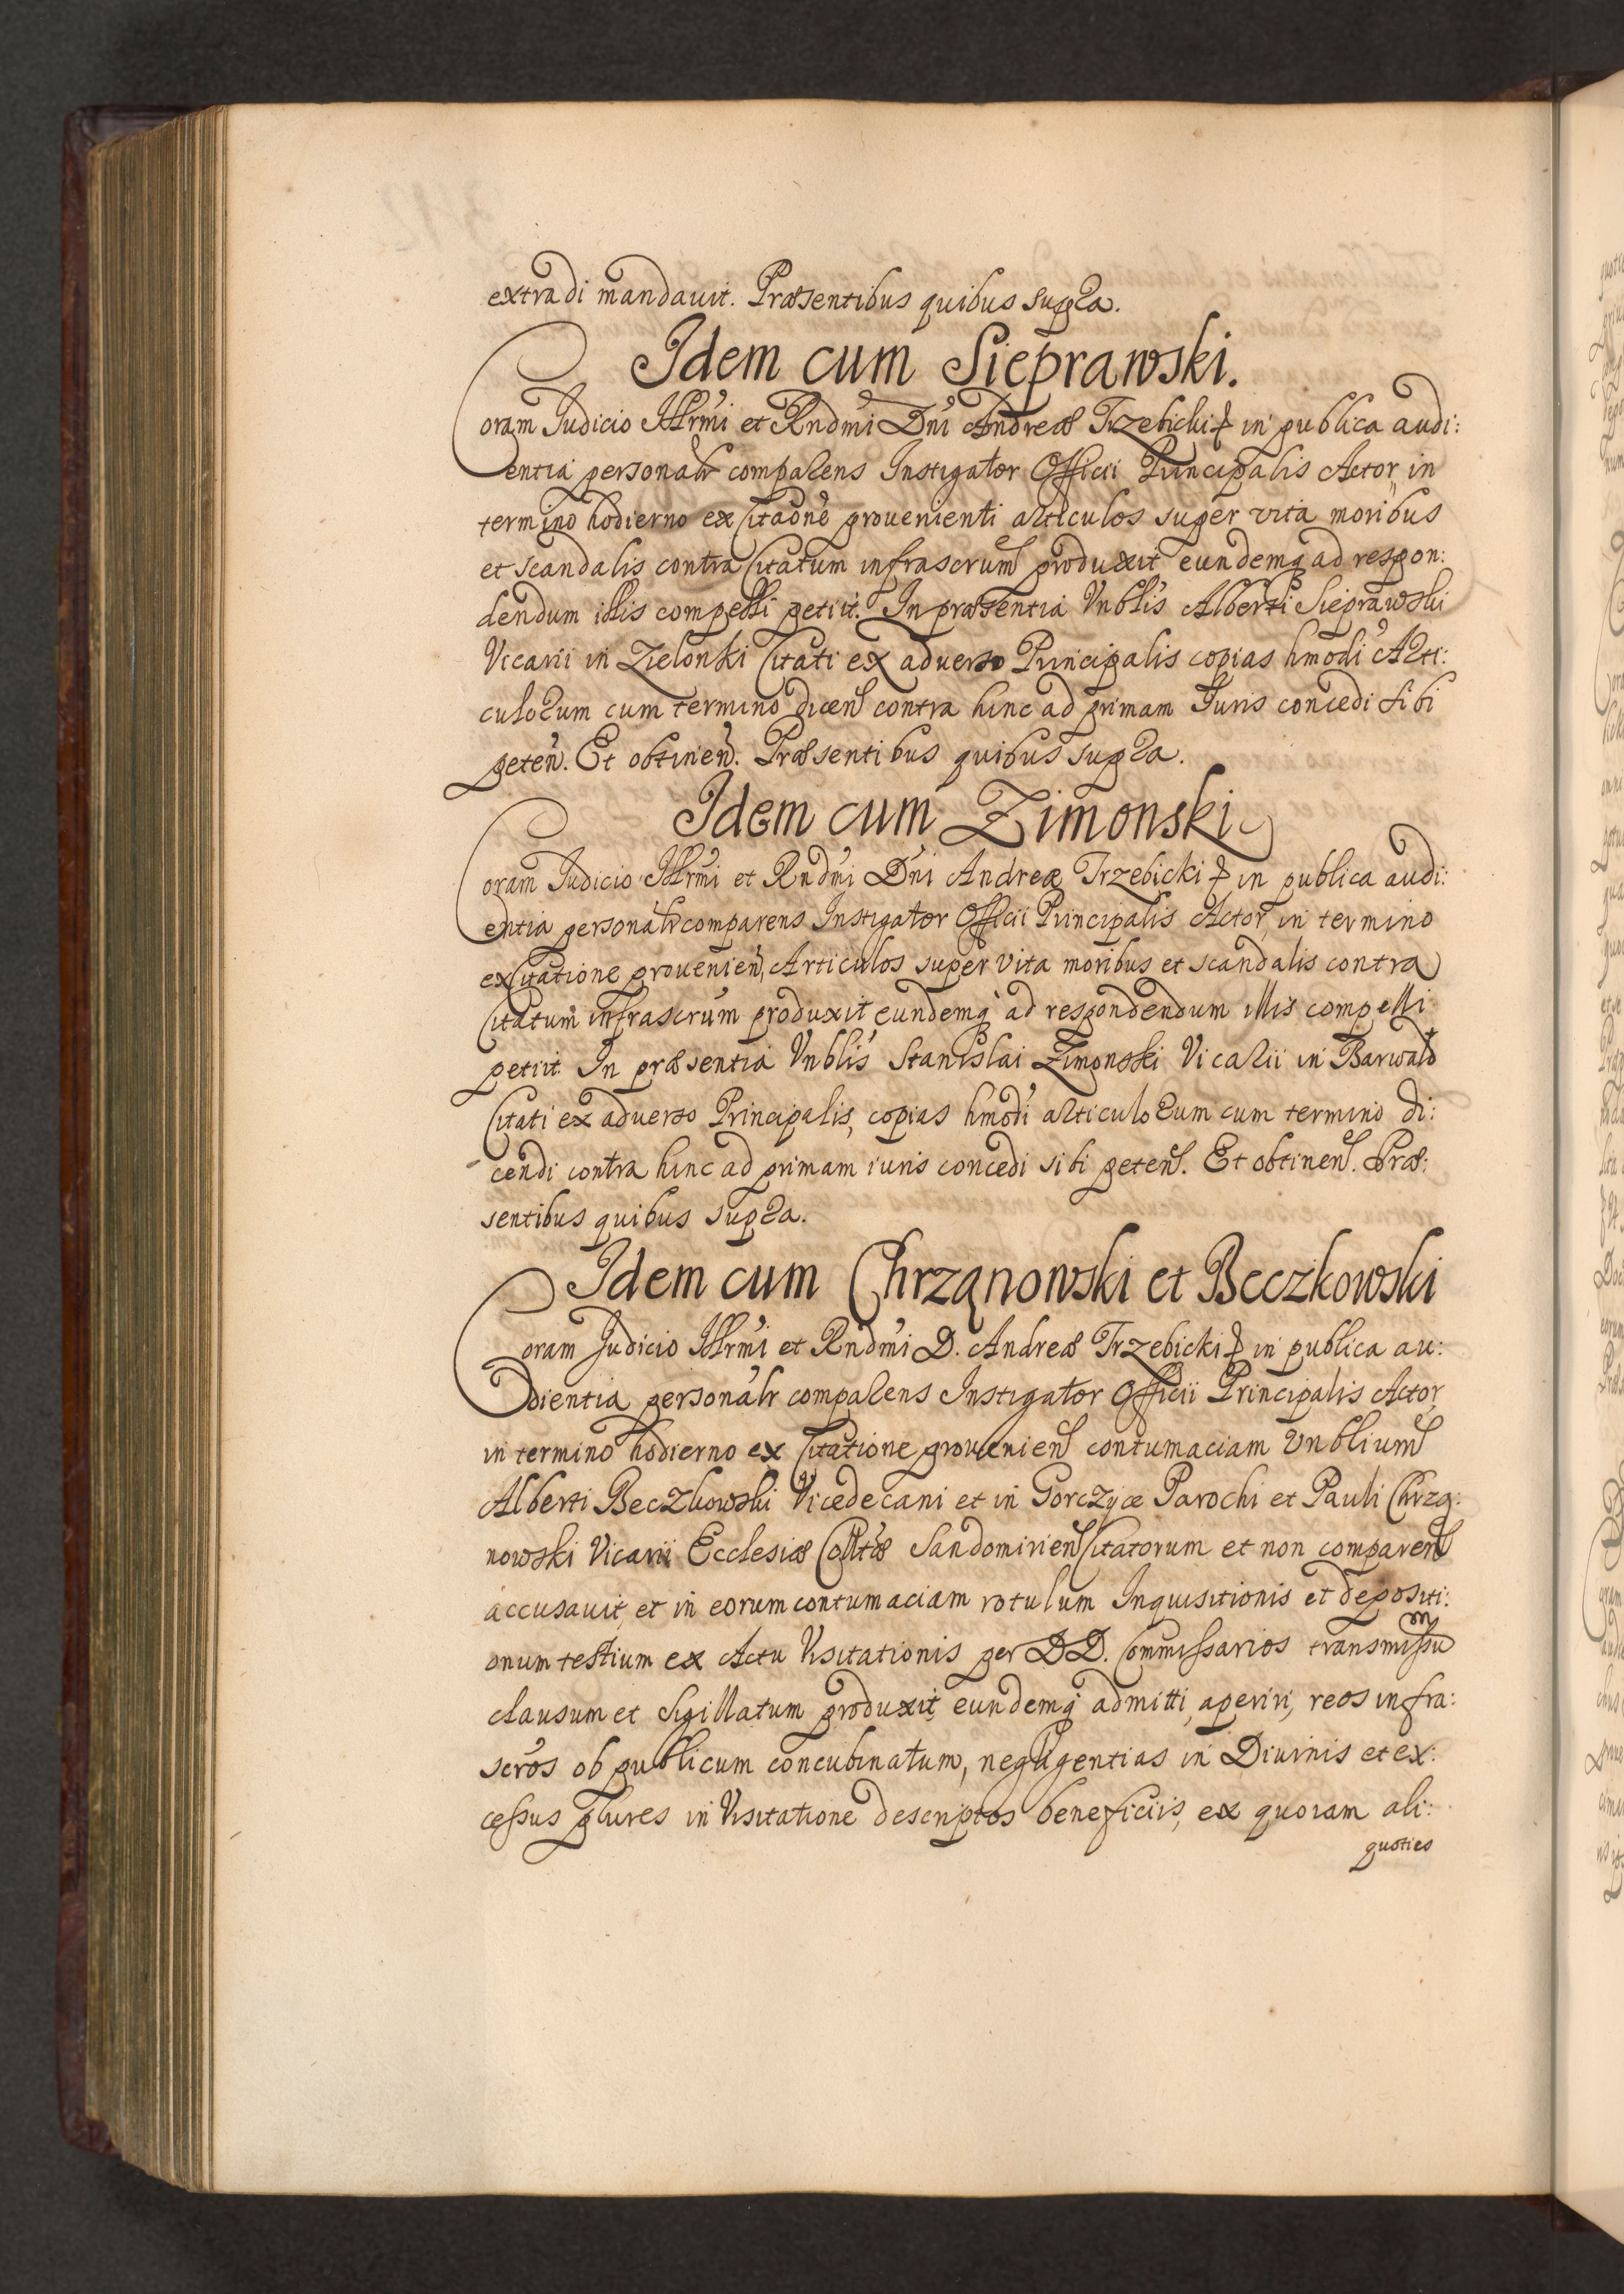 extradi mandauit. Præsentibus quibus supra.
Idem cum Sieprawski.
Coram Judicio Illrmi et Rndmi Dni Andreæ Trzebicki in publica audi:
entia personalr comparens Instigator Officii Principalis Actor, in
termino hodierno ex Citaone prouenienti articulos super vita moribus
et scandalis contra Citatum infrascrum produxit eundemq ad respon:
dendum illis compelli petiit. In præsentia Vnblis Alberti Sieprawski
Vicarii in Zielonki Citati ex aduerso Principalis copias hmodi Arti:
culorum cum termino dicen contra hinc ad primam Juris concedi sibi
peten. Et obtinen. Præsentibus quibus supra.
Idem cum Zimonski
Coram Judicio Illrmi et Rndmi Dni Andreæ Trzebicki in publica audi:
entia personalr comparens Instigator Officii Principalis Actor, in termino
ex Citatione prouenien, Articulos super vita moribus et scandalis contra
Citatum infrascrum produxit eundemq ad respondendum illis compelli
petiit. In præsentia Vnblis Stanislai Zimonski Vicarii in Barwald
Citati ex aduerso Principalis, copias hmodi articulorum cum termino di:
cendi contra hinc ad primam iuris concedi sibi peten. Et obtinen. Præ:
sentibus quibus supra.
Idem cum Chrząnowski et Beczkowski
Coram Judicio Illrmi et Rndmi D. Andreæ Trzebicki in publica au:
dientia personalr comparens Instigator Officii Principalis Actor,
in termino hodierno ex Citatione prouenien contumaciam Vnblium
Alberti Beczkowski Vicedecani et in Gorczyce Parochi et Pauli Chrzą:
nowski Vicarii Ecclesiæ Colltæ Sandomirien Citatorum et non comparen
accusauit, et in eorum contumaciam rotulum Inquisitionis et depositi:
onum testium ex Actu Visitationis per DD. Commissarios transmissum
clausum et Sigillatum produxit, eundemq admitti, aperiri, reos infra:
scros ob publicum concubinatum, negligentias in Diuinis et ex:
cessus plures in Visitatione descriptos beneficiis, ex quoram ali:
quoties